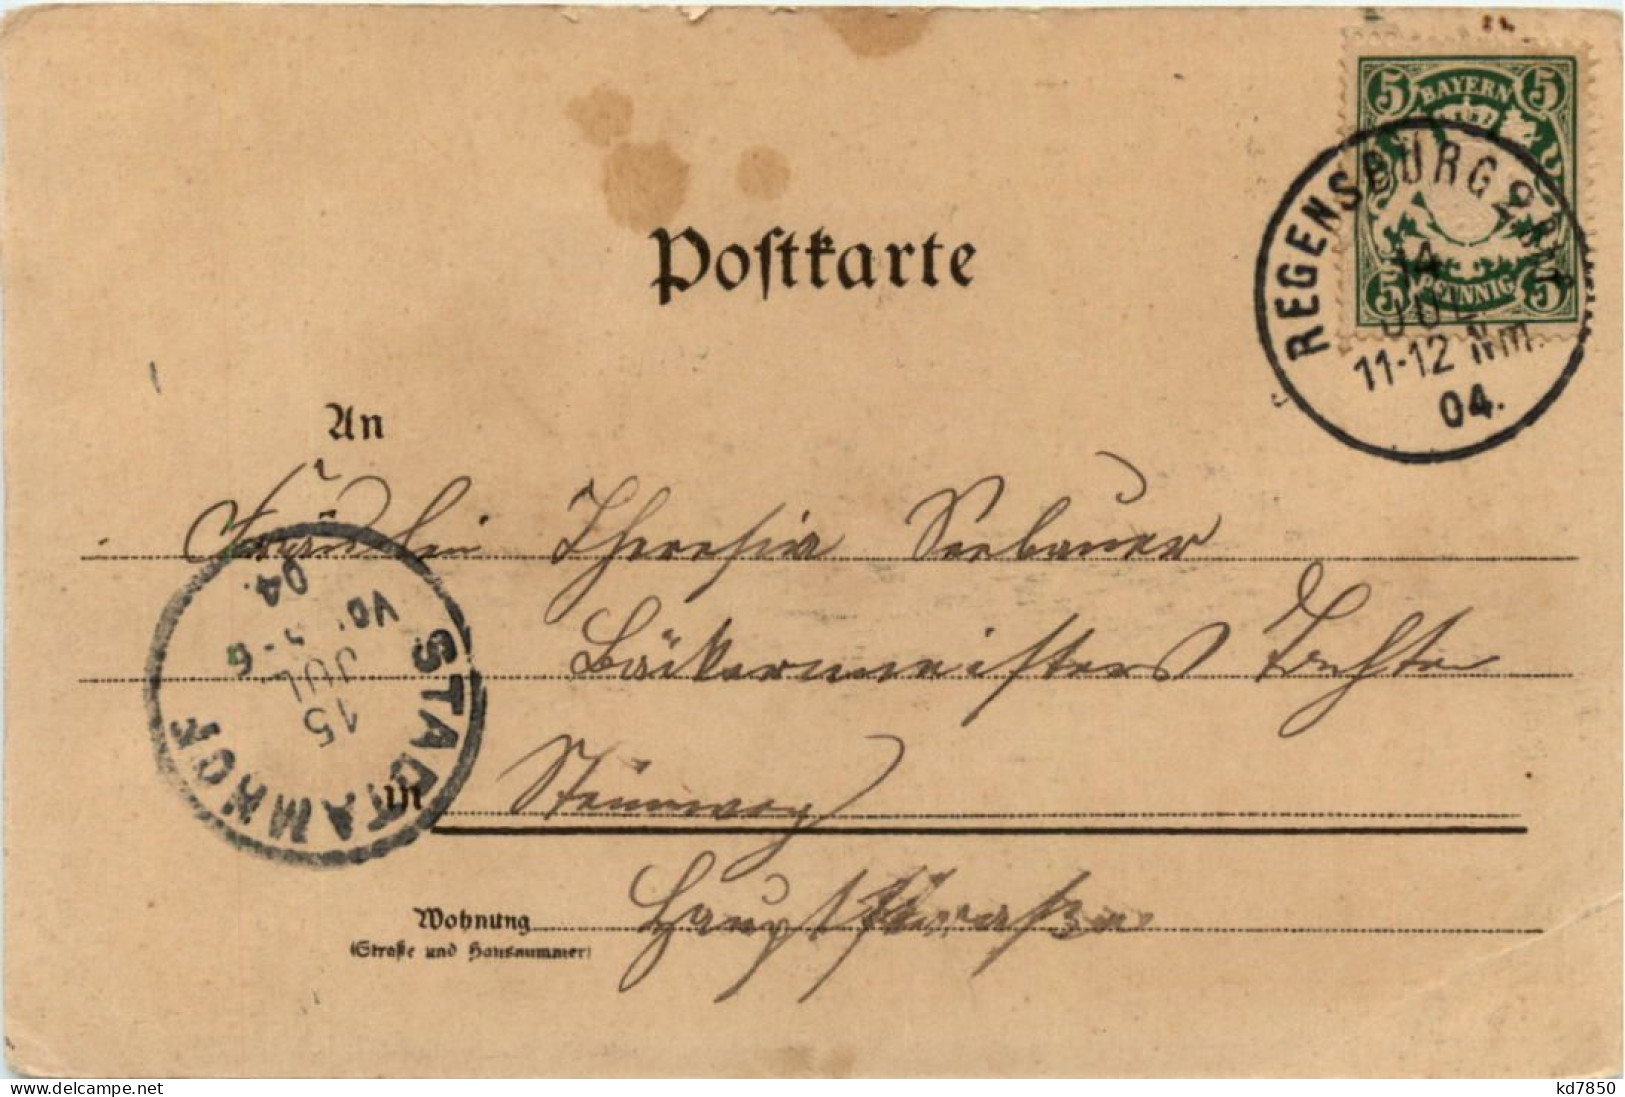 5 BAYERN 5
5 PFENNIG 5
REGENSBURG 2
14
JUL.
11-12 Nm.
04.
Postkarte
An
Fräulein Theresia Seebauer
Bäckermeisters Tochter
in Steinweg
Hauptstraße
Wohnung
(Straße und Hausnummer)
STADTAMHOF
15
JUL.
5-6
04.
www.delcampe.net
kd7850